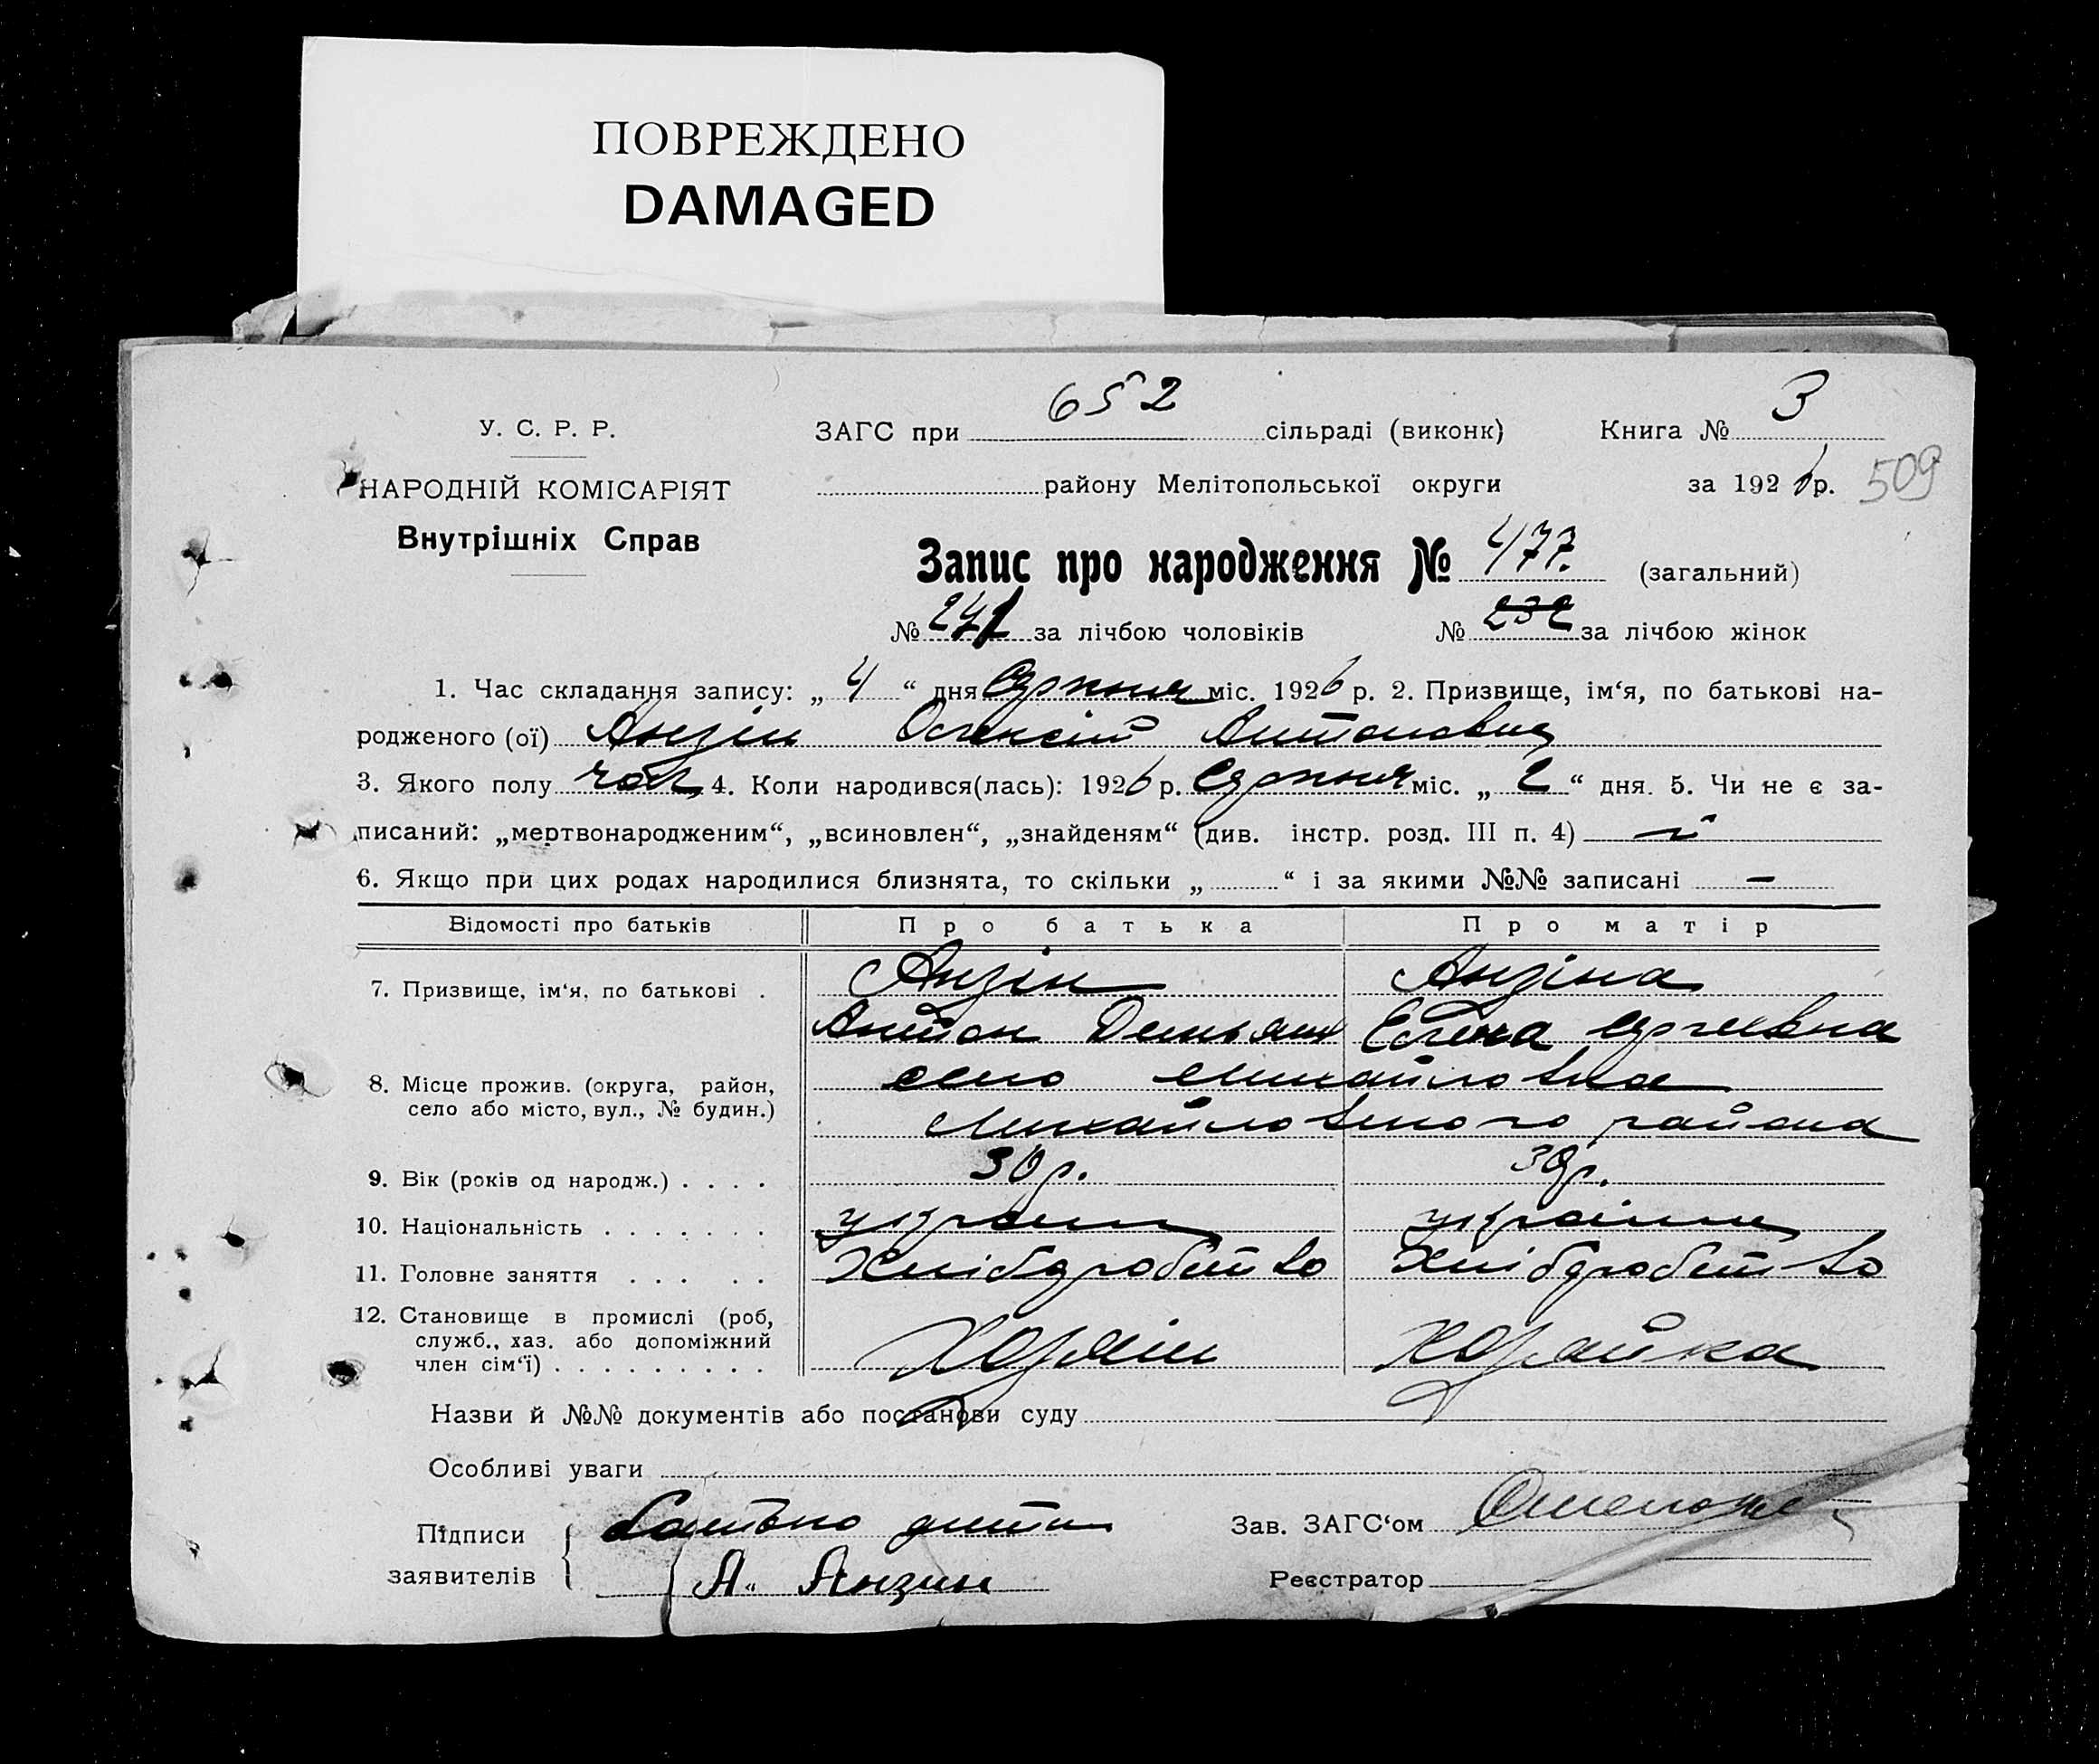 ПОВРЕЖДЕНО
DAMAGED
У. С. Р. Р.
ЗАГС при 652 сільраді (виконк)
Книга № 3
НАРОДНІЙ КОМІСАРІЯТ
району Мелітопольської округи
за 1926 р.
509
Внутрішніх Справ
Запис про народження № 477. (загальний)
№ 241 за лічбою чоловіків № 232 за лічбою жінок
1. Час складання запису: „ 4 “ дня Серпня міс. 1926 р. 2. Призвище, ім‘я, по батькові на-
родженого (ої) Анзін Олексій Антонович
3. Якого полу чол, 4. Коли народився(лась): 1926 р. Серпня міс. „ 2 “ дня. 5. Чи не є за-
писаний: „мертвонародженим“, „всиновлен“, „знайденям“ (див. інстр. розд. III п. 4)
6. Якщо при цих родах народилися близнята, то скільки „ “ і за якими №№ записані —
Відомості про батьків Про батька Про матір
7. Призвище, ім‘я, по батькові . Анзін Анзіна
Антон Демьян Елена
8. Місце прожив. (округа, район, село Михайловка
село або місто, вул., № будин.)
Михайловского района
9. Вік (років од народж.) . . . . 30 р. 30 р.
10. Національність . . . . . . .
11. Головне заняття . . . . . Хлібдробство Хлібдробство
12. Становище в промислі (роб,
служб., хаз. або допоміжний Хозяін Хозяйка
член сім‘ї) . . . . . . . . .
Назви й №№ документів або постанови суду
Особливі уваги
Підписи Батько дити
Зав. ЗАГС‘ом
заявителів А. Анзин
Реєстратор